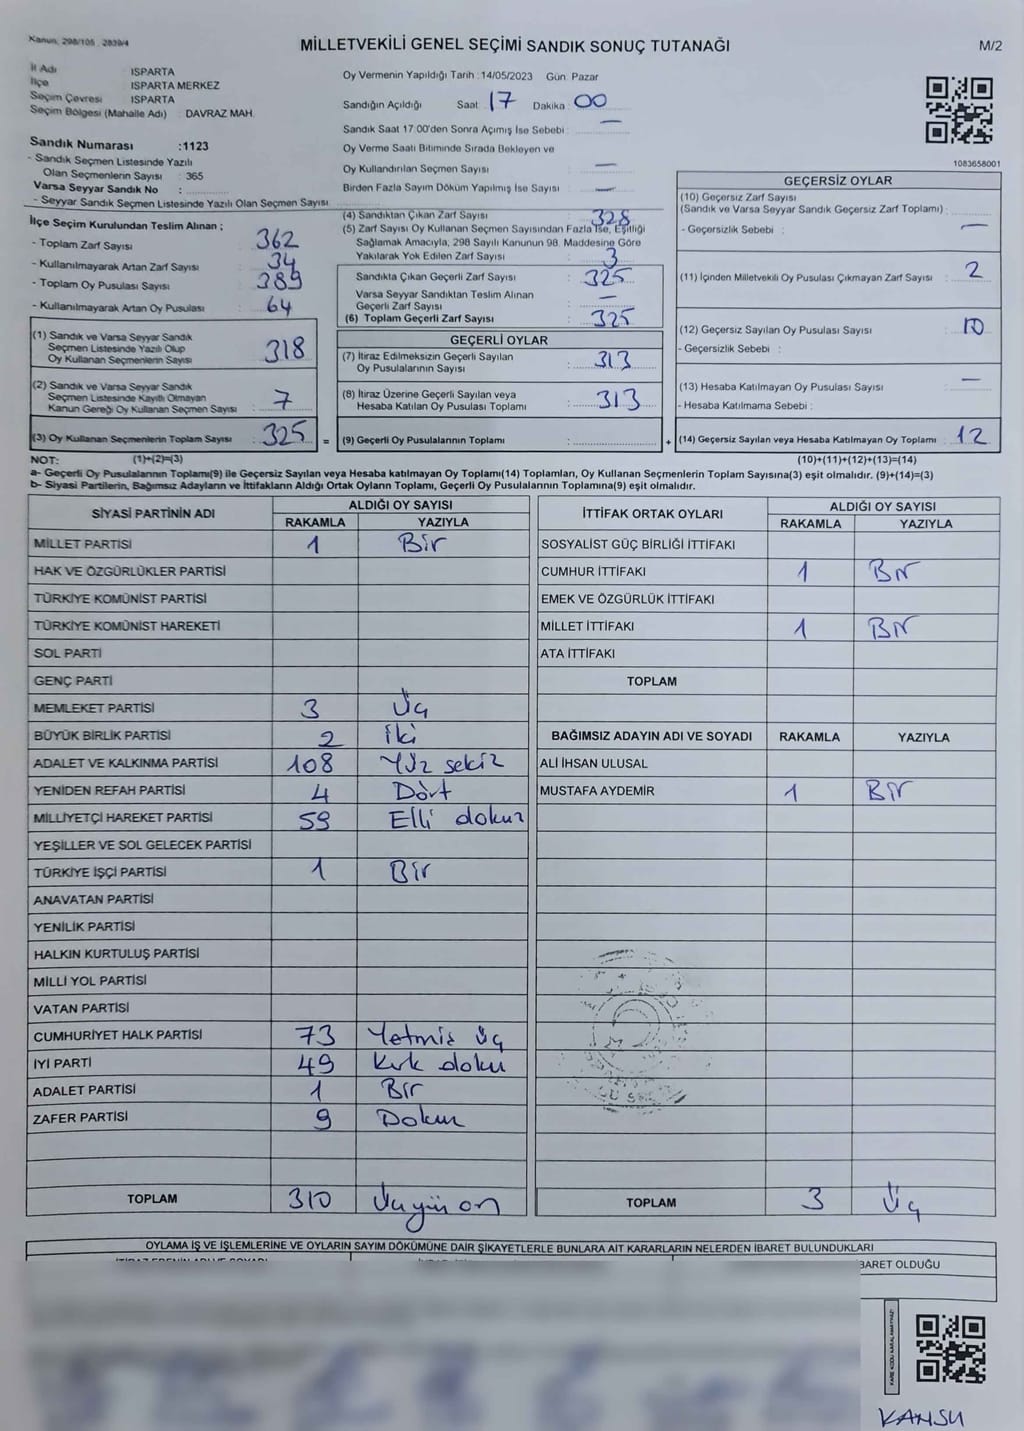 Kanun, 298/105, 2839/4
MİLLETVEKİLİ GENEL SEÇİMİ SANDIK SONUÇ TUTANAĞI
M/2
İl Adı ISPARTA
İlçe ISPARTA MERKEZ
Seçim Çevresi ISPARTA
Seçim Bölgesi (Mahalle Adı) DAVRAZ MAH.
Sandık Numarası :1123
- Sandık Seçmen Listesinde Yazılı
Olan Seçmenlerin Sayısı : 365
Varsa Seyyar Sandık No :
- Seyyar Sandık Seçmen Listesinde Yazılı Olan Seçmen Sayısı
Oy Vermenin Yapıldığı Tarih :14/05/2023 Gün: Pazar
Sandığın Açıldığı Saat: 17 Dakika: 00
Sandık Saat 17:00'den Sonra Açımış İse Sebebi : —
Oy Verme Saati Bitiminde Sırada Bekleyen ve
Oy Kullandırılan Seçmen Sayısı : —
Birden Fazla Sayım Döküm Yapılmış İse Sayısı : —
1083658001
İlçe Seçim Kurulundan Teslim Alınan ;
- Toplam Zarf Sayısı : 362
- Kullanılmayarak Artan Zarf Sayısı : 34
- Toplam Oy Pusulası Sayısı : 389
- Kullanılmayarak Artan Oy Pusulası : 64
(1) Sandık ve Varsa Seyyar Sandık
Seçmen Listesinde Yazılı Olup
Oy Kullanan Seçmenlerin Sayısı : 318
(2) Sandık ve Varsa Seyyar Sandık
Seçmen Listesinde Kayıtlı Olmayan
Kanun Gereği Oy Kullanan Seçmen Sayısı : 7
(3) Oy Kullanan Seçmenlerin Toplam Sayısı : 325 =
(4) Sandıktan Çıkan Zarf Sayısı : 328
(5) Zarf Sayısı Oy Kullanan Seçmen Sayısından Fazla İse, Eşitliği
Sağlamak Amacıyla, 298 Sayılı Kanunun 98. Maddesine Göre
Yakılarak Yok Edilen Zarf Sayısı : 3
Sandıkta Çıkan Geçerli Zarf Sayısı : 325
Varsa Seyyar Sandıktan Teslim Alınan
Geçerli Zarf Sayısı : —
(6) Toplam Geçerli Zarf Sayısı : 325
GEÇERLİ OYLAR
(7) İtiraz Edilmeksizin Geçerli Sayılan
Oy Pusulalarının Sayısı : 313
(8) İtiraz Üzerine Geçerli Sayılan veya
Hesaba Katılan Oy Pusulası Toplamı : 313
(9) Geçerli Oy Pusulalarının Toplamı : +
GEÇERSİZ OYLAR
(10) Geçersiz Zarf Sayısı
(Sandık ve Varsa Seyyar Sandık Geçersiz Zarf Toplamı) :
- Geçersizlik Sebebi : —
(11) İçinden Milletvekili Oy Pusulası Çıkmayan Zarf Sayısı : 2
(12) Geçersiz Sayılan Oy Pusulası Sayısı : 10
- Geçersizlik Sebebi :
(13) Hesaba Katılmayan Oy Pusulası Sayısı : —
- Hesaba Katılmama Sebebi :
(14) Geçersiz Sayılan veya Hesaba Katılmayan Oy Toplamı : 12
NOT: (1)+(2)=(3) (10)+(11)+(12)+(13)=(14)
a- Geçerli Oy Pusulalarının Toplamı(9) ile Geçersiz Sayılan veya Hesaba katılmayan Oy Toplamı(14) Toplamları, Oy Kullanan Seçmenlerin Toplam Sayısına(3) eşit olmalıdır. (9)+(14)=(3)
b- Siyasi Partilerin, Bağımsız Adayların ve İttifakların Aldığı Ortak Oyların Toplamı, Geçerli Oy Pusulalarının Toplamına(9) eşit olmalıdır.
SİYASİ PARTİNİN ADI ALDIĞI OY SAYISI
RAKAMLA YAZIYLA
MİLLET PARTİSİ 1 Bir
HAK VE ÖZGÜRLÜKLER PARTİSİ
TÜRKİYE KOMÜNİST PARTİSİ
TÜRKİYE KOMÜNİST HAREKETİ
SOL PARTİ
GENÇ PARTİ
MEMLEKET PARTİSİ 3 Üç
BÜYÜK BİRLİK PARTİSİ 2 İki
ADALET VE KALKINMA PARTİSİ 108 Yüz sekiz
YENİDEN REFAH PARTİSİ 4 Dört
MİLLİYETÇİ HAREKET PARTİSİ 59 Elli dokuz
YEŞİLLER VE SOL GELECEK PARTİSİ
TÜRKİYE İŞÇİ PARTİSİ 1 Bir
ANAVATAN PARTİSİ
YENİLİK PARTİSİ
HALKIN KURTULUŞ PARTİSİ
MİLLİ YOL PARTİSİ
VATAN PARTİSİ
CUMHURİYET HALK PARTİSİ 73 Yetmiş üç
İYİ PARTİ 49 Kırk doku
ADALET PARTİSİ 1 Bir
ZAFER PARTİSİ 9 Dokuz
TOPLAM 310 Üçyüz on
İTTİFAK ORTAK OYLARI ALDIĞI OY SAYISI
RAKAMLA YAZIYLA
SOSYALİST GÜÇ BİRLİĞİ İTTİFAKI
CUMHUR İTTİFAKI 1 Bir
EMEK VE ÖZGÜRLÜK İTTİFAKI
MİLLET İTTİFAKI 1 Bir
ATA İTTİFAKI
TOPLAM
BAĞIMSIZ ADAYIN ADI VE SOYADI RAKAMLA YAZIYLA
ALİ İHSAN ULUSAL
MUSTAFA AYDEMİR 1 Bir
TOPLAM 3 Üç
OYLAMA İŞ VE İŞLEMLERİNE VE OYLARIN SAYIM DÖKÜMÜNE DAİR ŞİKAYETLERLE BUNLARA AİT KARARLARIN NELERDEN İBARET BULUNDUKLARI
BARET OLDUĞU
KARE KODU KARALAMAYINIZ!
KANSU